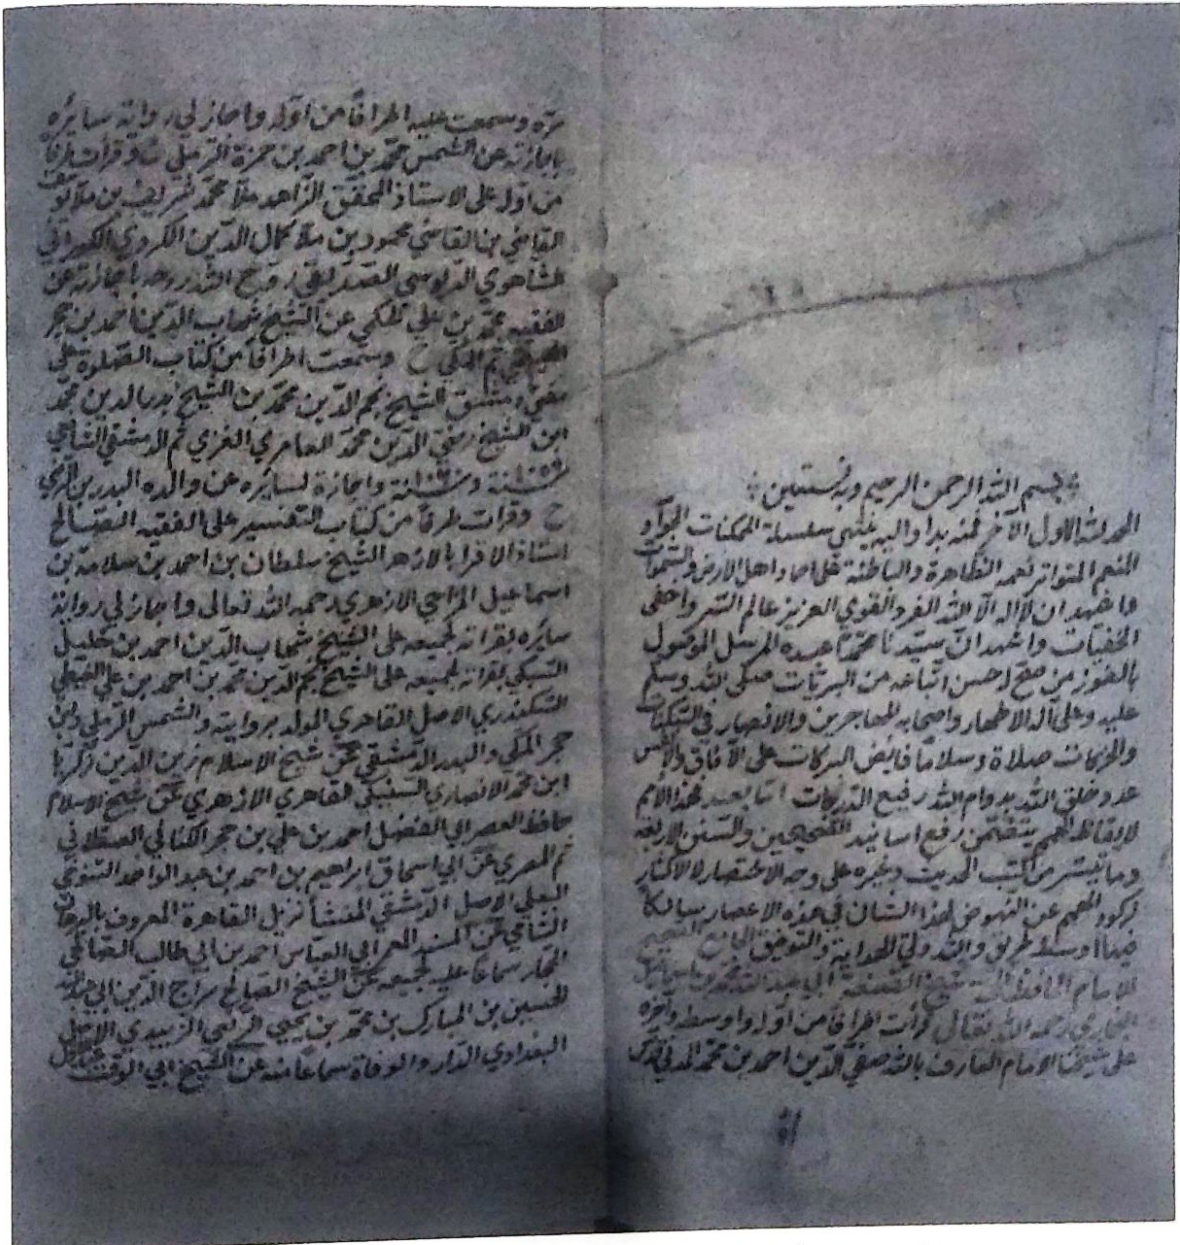 بسم الله الرحمن الرحيم وبه نستعين
الحمد لله الاول الآخر فمنه بدأ واليه ينتهي سلسلة الممكنات الجواد
المنعم المتواتر نعمه الظاهرة والباطنة على احاد اهل الارض والسموات
واشهد ان لا اله الا الله الفرد القوي العزيز عالم السر واخفى
الخفيات واشهد ان سيدنا محمدا عبده المرسل الموصول
بالفوز من صح له حسن اتباعه من البريات صلى الله وسلم
عليه وعلى آله الاطهار واصحابه المهاجرين والانصار في السكنات
والحركات صلاة وسلاما فايض البركات على الآفاق والانفس
عدد خلق الله بدوام الله رفيع الدرجات اما بعد فهذا الامم
لايقاظ الهمم يتضمن رفع اسانيد الصحيحين والسنن الاربعة
وما تيسر من كتب الحديث وغيره على وجه الاختصار لا الاكثار
لركود الهمم عن النهوض لهذا الشان في هذه الاعصار سالكا
فيها اوسط طريق والله ولي الهداية والتوفيق الجامع الصحيح
للامام الحافظ شيخ الصنعة ابي عبد الله محمد بن اسماعيل
البخاري رحمه الله تعالى قرأت اطرافا من اوله واوسطه وآخره
على شيخنا الامام العارف بالله صفي الدين احمد بن محمد المدني قدس
سره وسمعت عليه اطرافا من اوله واجاز لي رواية سايره
باجازته عن الشمس محمد بن احمد بن حمزة الرملي ح وقرأت طرفا
من اوله على الاستاذ المحقق الزاهد ملا محمد شريف بن ملا يوسف
القاضي بن القاضي محمود بن ملا كمال الدين الكردي الكوراني
الشاهوي الصديقي روح الله روحه باجازته عن
الفقيه محمد بن علي الحكمي عن الشيخ شهاب الدين احمد بن حجر
الهيتمي ثم المكي ح وسمعت اطرافا من كتاب الصلوة على
مفتي دمشق الشيخ نجم الدين محمد بن الشيخ بدر الدين محمد
ابن الشيخ رضي الدين محمد العامري الغزي ثم الدمشقي الشافعي
واجازة لسائره عن والده البدر بن الرضي
ح وقرأت طرفا من كتاب التفسير على الفقيه الصالح
استاذ الاقرا بالازهر الشيخ سلطان بن احمد بن سلامة بن
اسماعيل المزاحي الازهري رحمه الله تعالى واجاز لي رواية
سايره بقراته لجميعه على الشيخ شهاب الدين احمد بن خليل
السبكي بقراته لجميعه على الشيخ نجم الدين محمد بن احمد بن علي الغيطي
السكندري الاصل القاهري المولد بروايته والشمس الرملي وابن
حجر المكي والبدر الدمشقي عن شيخ الاسلام زين الدين زكريا
ابن محمد الانصاري السنيكي القاهري الازهري عن شيخ الاسلام
حافظ العصر ابي الفضل احمد بن علي بن حجر الكناني العسقلاني
ثم المصري عن ابي اسحاق ابراهيم بن احمد بن عبد الواحد التنوخي
البعلي الاصل الدمشقي المنشأ نزيل القاهرة المعروف بالبرهان
الشامي عن المسند المعمر ابي العباس احمد بن ابي طالب الصالحي
الحجار سماعا عليه لجميعه عن الشيخ الصالح سراج الدين ابي عبد الله
الحسين بن المبارك بن محمد بن يحيى الزبيدي الاصل
البغدادي الدار والوفاة سماعا منه عن الشيخ ابي الوقت